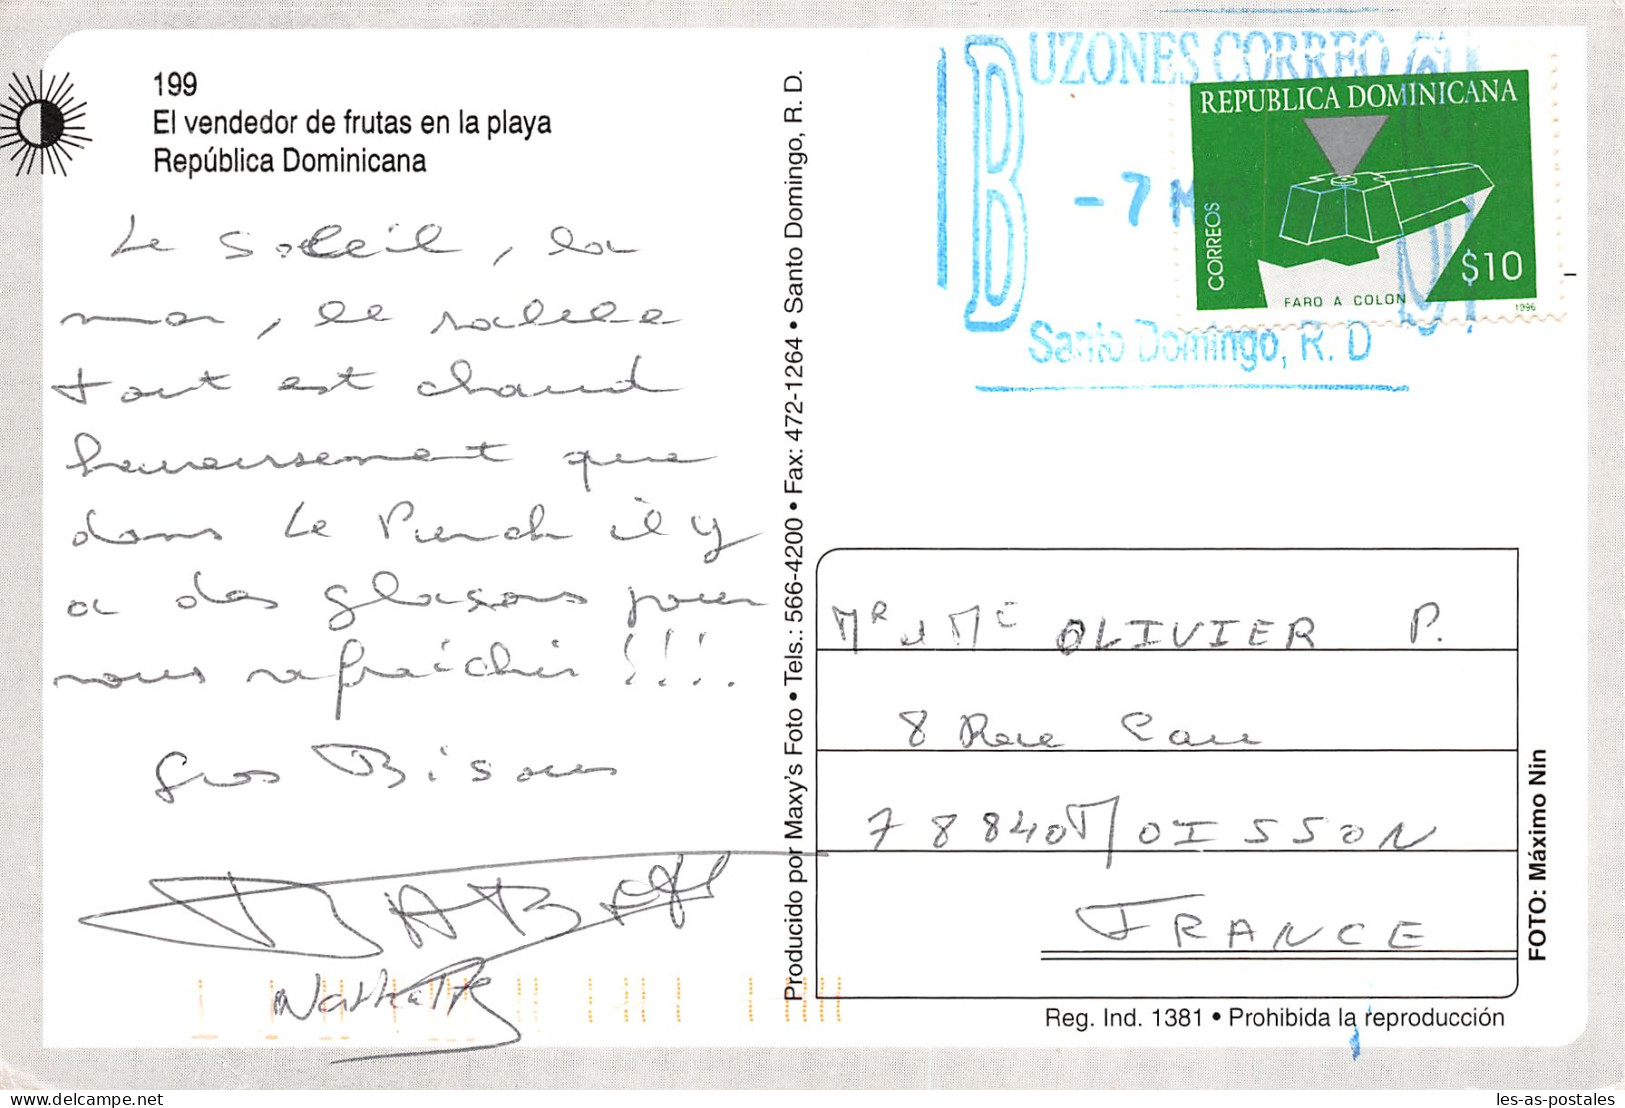 199
El vendedor de frutas en la playa
República Dominicana
Le Soleil, la
mer, le sable
tout est chaud
heureusement que
dans Le Punch il y
a des glaçons pour
nous rafraîchir !!!!
Gros Bisous
Nathalie
Producido por Maxy's Foto • Tels.: 566-4200 • Fax: 472-1264 • Santo Domingo, R. D.
BUZONES CORREO
- 7 M
Santo Domingo, R. D
REPUBLICA DOMINICANA
CORREOS
$10
FARO A COLON
1996
Mr et Me OLIVIER P.
8 Rue
78840 MOISSON
FRANCE
FOTO: Máximo Nin
Reg. Ind. 1381 • Prohibida la reproducción
myslc
les-as-postales